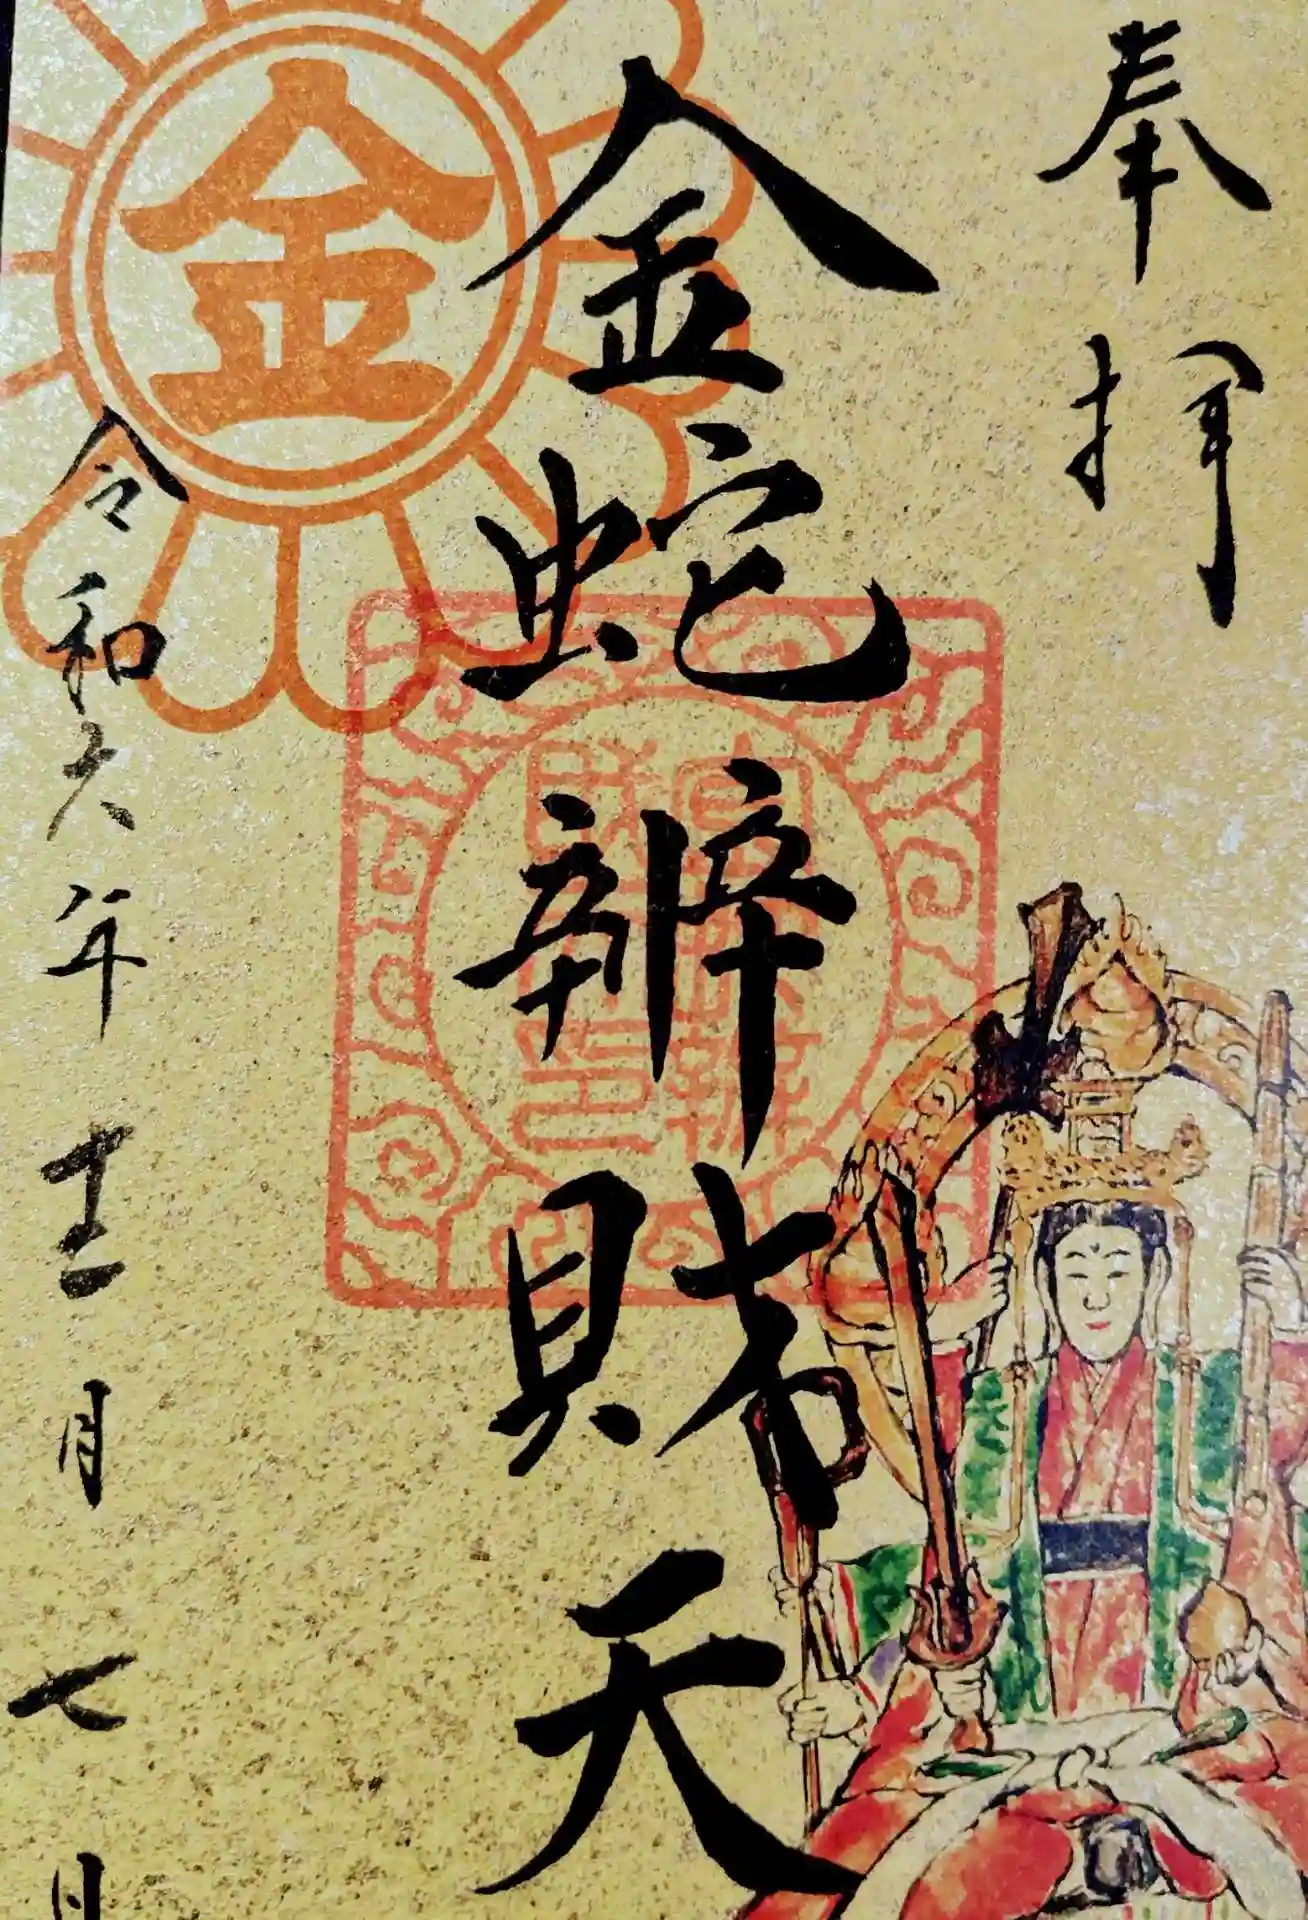 奉拝
金蛇辨財天
金
令和六年十二月七日